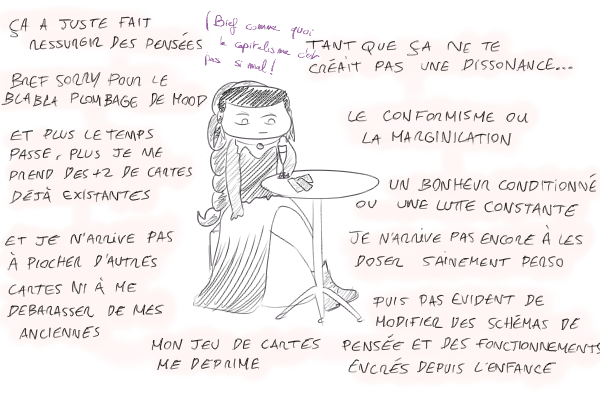 ÇA A JUSTE FAIT
RESSURGIR DES PENSÉES
(Bref comme quoi
le capitalisme c'est
pas si mal !
TANT QUE ÇA NE TE
CRÉAIT PAS UNE DISSONANCE...
BREF SORRY POUR LE
BLABLA PLOMBAGE DE MOOD
LE CONFORMISME OU
LA MARGINILATION
ET PLUS LE TEMPS
PASSE, PLUS JE ME
PREND DES +2 DE CARTES
DÉJÀ EXISTANTES
UN BONHEUR CONDITIONNÉ
OU UNE LUTTE CONSTANTE
ET JE N'ARRIVE PAS
À PIOCHER D'AUTRES
CARTES NI À ME
DEBARASSER DE MES
ANCIENNES
JE N'ARRIVE PAS ENCORE À LES
DOSER SAINEMENT PERSO
PUIS PAS EVIDENT DE
MODIFIER DES SCHÉMAS DE
PENSÉE ET DES FONCTIONNEMENTS
ENCRÉS DEPUIS L'ENFANCE
MON JEU DE CARTES
ME DEPRIME